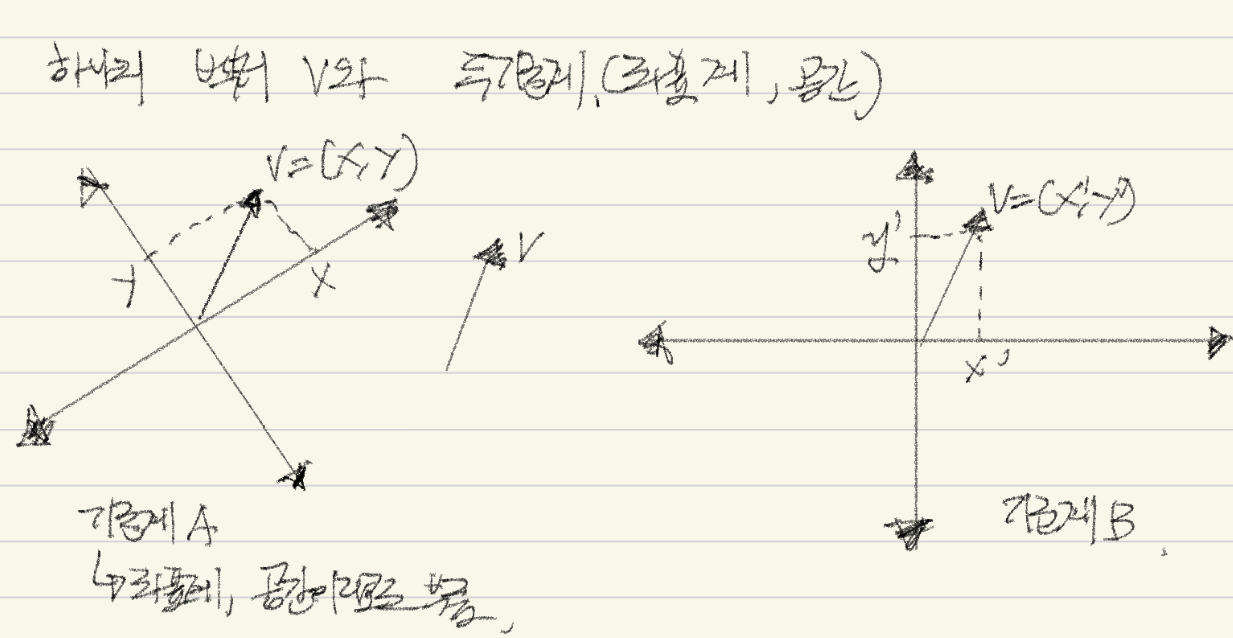 하나의 벡터 V와 두기준계.(좌표계, 공간)
V=(X,Y)
Y
X
V
V=(X',Y')
y'
x'
기준계 A
↳좌표계, 공간이라고도 부름,
기준계 B.